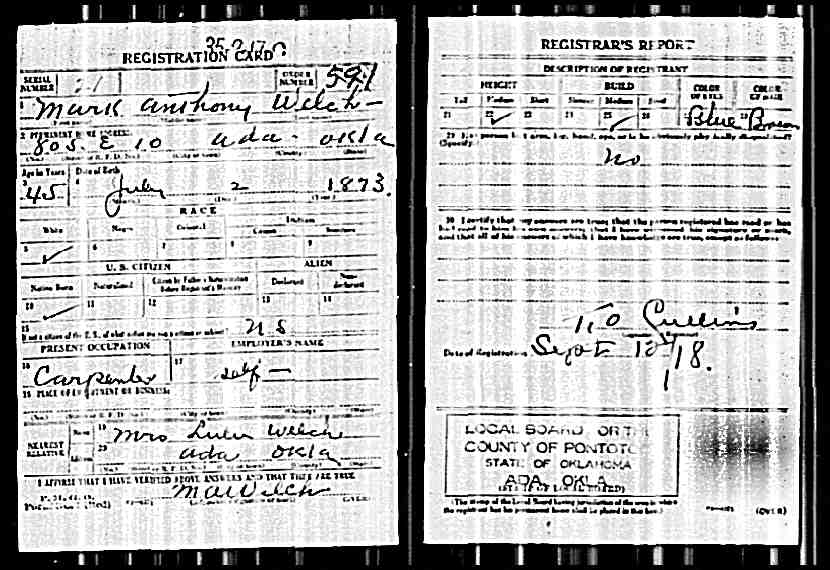 REGISTRATION CARD
SERIAL NUMBER
ORDER NUMBER 591
1 Mark Anthony Welch
2 PERMANENT HOME ADDRESS
805. E 10 Ada - Okla
Age in Years Date of Birth
3 45 4 July 2 1873.
RACE
White Negro Oriental Indian
Citizen
5 ✓ 6 7 8 9
U. S. CITIZEN ALIEN
Native Born Naturalized Citizen by Father's Naturalization Before Registrant's Majority Declarant Non-declarant
10 ✓ 11 12 13 14
15
If not a citizen of the U. S., of what nation are you a citizen or subject? U S
PRESENT OCCUPATION EMPLOYER'S NAME
16 Carpenter 17 self —
18 PLACE OF EMPLOYMENT OR BUSINESS
NEAREST RELATIVE
Name 19 Mrs Lulu Welch
Address 20 Ada Okla
I AFFIRM THAT I HAVE VERIFIED ABOVE ANSWERS AND THAT THEY ARE TRUE
M A Welch
(OVER)
REGISTRAR'S REPORT
DESCRIPTION OF REGISTRANT
HEIGHT BUILD COLOR OF EYES COLOR OF HAIR
Tall Medium Short Slender Medium Stout
21 22 ✓ 23 24 25 ✓ 26 Blue Brown
29 Has person lost arm, leg, hand, eye, or is he obviously physically disqualified?
(Specify.)
No
30 I certify that my answers are true; that the person registered has read or has had read to him his own answers; that I have witnessed his signature or mark, and that all of his answers of which I have knowledge are true, except as follows:
Date of Registration Sept 12 /18.
LOCAL BOARD OR THE
COUNTY OF PONTOTOC
STATE OF OKLAHOMA
ADA, OKLA.
(STAMP OF LOCAL BOARD)
(The stamp of the Local Board having jurisdiction of the area in which
the registrant has his permanent home shall be placed in this box.)
(OVER)